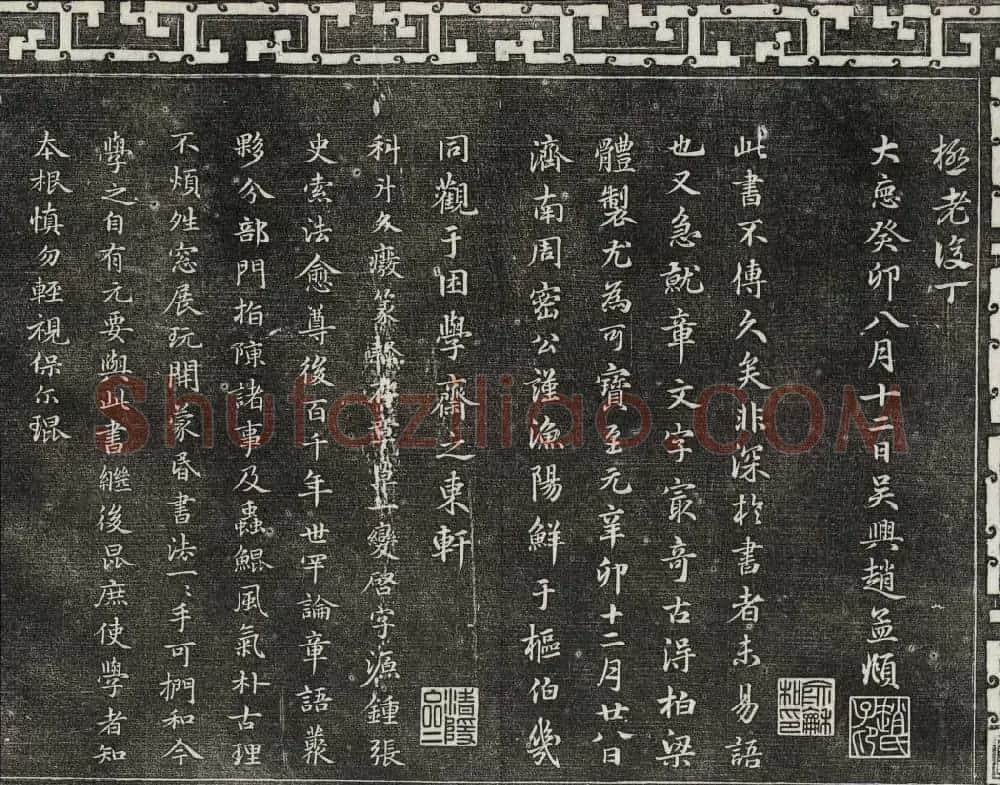 極老後丁
大德癸卯八月十二日吳興趙孟頫
此書不傳久矣非深於書者未易語
也又急就章文字㝡奇古得柏梁
體製尤為可寶至元辛卯十二月廿八日
濟南周密公謹漁陽鮮于樞伯幾
同觀于困學齋之東軒
科斗久癈篆 草草變啓字源鍾張
史索法愈尊後百千年世罕論章語蕞
夥分部門指陳諸事及蟲鯤風氣朴古理
不煩姓窓展玩開蒙昏書法一〻手可捫和今
學之自有元要與此書繼後昆庶使學者知
本根慎勿輕視保尔琨
趙氏子昂
Shufaziliao.COM